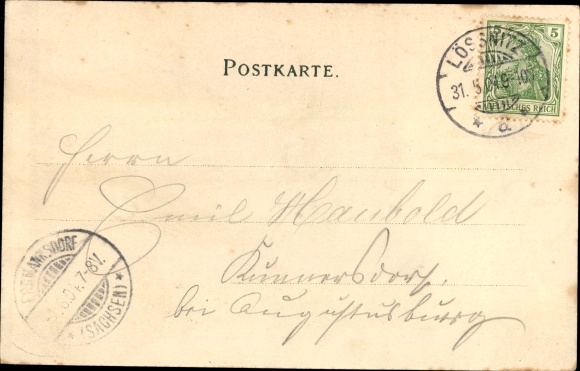 POSTKARTE.
5
LÖSSNITZ
31. 5. 04. 9-10
* a *
DEUTSCHES REICH
Herrn
Emil Haubold
Kunnersdorf.
bei Augustusburg
ERDMANNSDORF
7-8V.
*(SACHSEN)*